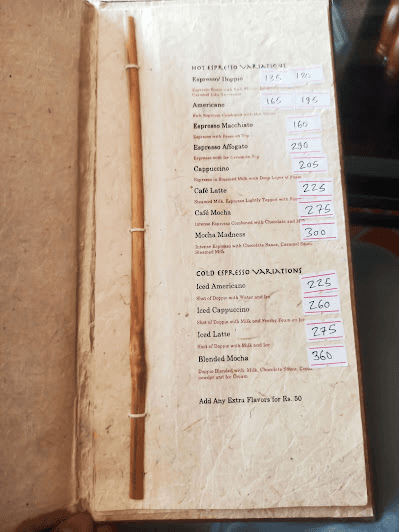 HOT ESPRESSO VARIATIONS
Espresso/ Doppio 135
Americano 165 195
Rich Espresso Combined with Hot Water
Espresso Macchiato 160
Espresso with Foam on Top
Espresso Affogato 290
Espresso with Ice Cream on Top
Cappuccino 205
Espresso in Steamed Milk with Deep Layer of Foam
Café Latte 225
Steamed Milk, Espresso Lightly Topped with Foam
Café Mocha 275
Intense Espresso Combined with Chocolate and Milk
Mocha Madness 300
Intense Espresso with Chocolate Sauce, Caramel
Steamed Milk
COLD ESPRESSO VARIATIONS
Iced Americano 225
Shot of Doppio with Water and Ice
Iced Cappuccino 260
Shot of Doppio with Milk and Foam on Ice
Iced Latte 275
Shot of Doppio with Milk and Ice
Blended Mocha 360
Doppio Blended with Milk, Chocolate Sauce,
and Ice Cream
Add Any Extra Flavors for Rs. 50